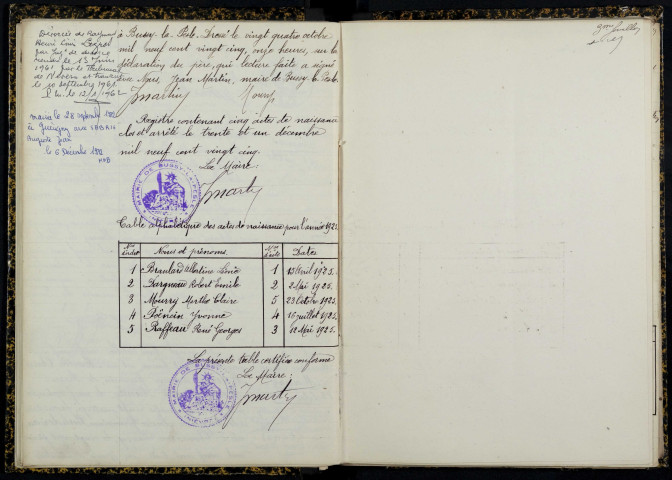 Divorcée de
Henri Louis
par jugt de
rendu le 15 Juin
1961 par le Tribunal
de Nevers et transcrit
le 10 septembre 1961
le 12/1/1962
Mariée le 28 septembre
à Guérigny avec
Auguste Jean
le 6 Décembre
à Bussy-la-Pesle. Dressé le vingt quatre octobre
mil neuf cent vingt cinq, onze heures, sur la
déclaration du père, qui lecture faite a signé
avec Nous, Jean Martin, maire de Bussy la Pesle.
JMartin Mourry
Registre contenant cinq actes de naissance
clos et arrêté le trente et un décembre
mil neuf cent vingt cinq.
Le Maire:
MAIRIE DE BUSSY-LA-PESLE
(NIÈVRE)
JMartin
Table alphabétique des actes de naissance pour l'année 1925
Nos d'ordre Noms et prénoms. Nos d'acte Dates
1 Albertine 1 15 Avril 1925.
2 Robert Emile 2 2 Mai 1925.
3 Mourry Marthe Claire 5 23 Octobre 1925.
4 Yvonne 4 15 juillet 1925.
5 Raffeau René Georges 3 12 Mai 1925.
La présente table certifiée conforme
Le Maire:
MAIRIE DE BUSSY-LA-PESLE
(NIÈVRE)
JMartin
feuillet